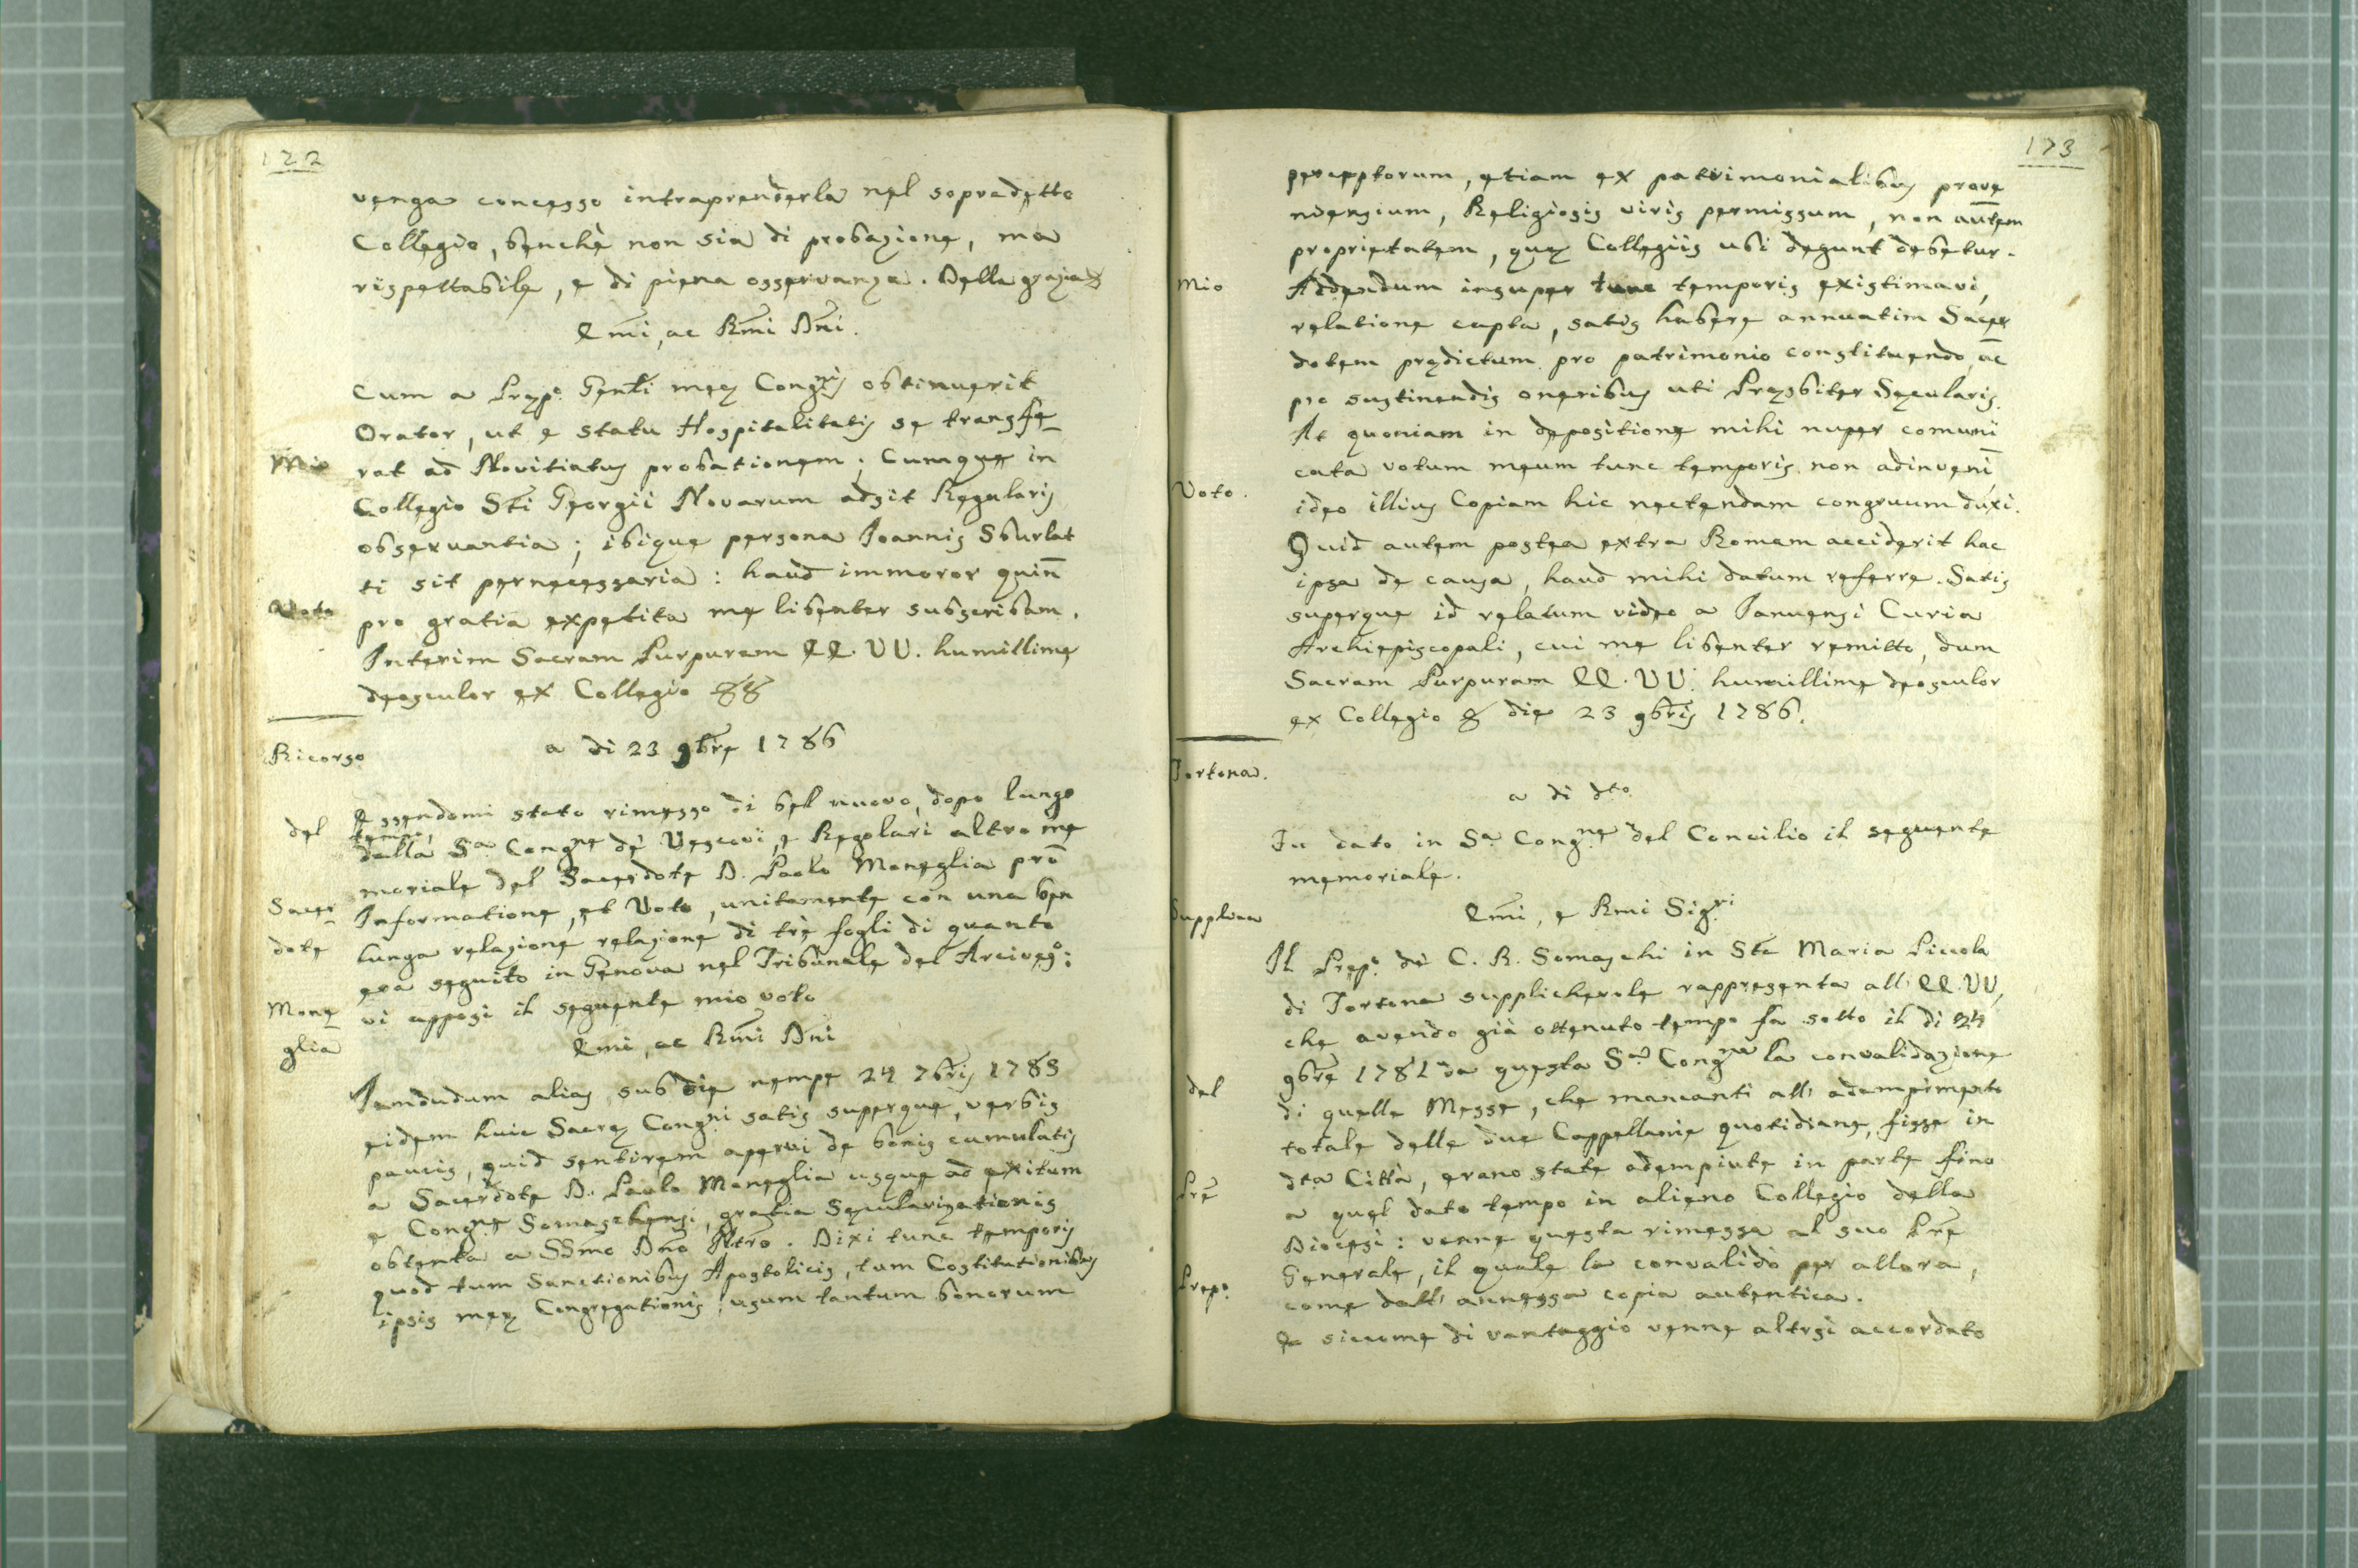 122
venga concesso intraprenderla nel sopradetto
Collegio, benchè non sia di probazione, ma
rispettabile, e di piena osservanza. Della grazia
Emi, ac Rmi Dni.
Cum a Præpo. Genli meæ Congnis obtinuerit
Orator, ut e statu Hospitalitatis se transfe_
Mio
rat ad Novitiatus probationem; Cumque in
Collegio Sti Georgii Novarum adsit Regularis
observantia; ibique persona Joannis Sburlat
ti sit pernecessaria: haud immoror quin
Voto
pro gratia expetita me libenter subscribam.
Interim Sacram Purpuram EE. VV. humillime
deosculor ex Collegio
Ricorso
a di 23 9bre 1786
del
Essendomi stato rimesso di bel nuovo, dopo lungo
tempo,
dalla Sa Congne de Vescovi, e Regolari altro me
moriale del Sacerdote D. Paolo Moneglia pro
Sacer
Informatione, et Voto, unitamente con una ben
dote
lunga relazione relazione di trè fogli di quanto
era seguito in Genova nel Tribunale del Arciveso:
Mone
vi apposi il seguente mio voto
glia
Emi, ac Rmi Dni
Jamdudum alias, sub die nempe 24 7bris 1785
eidem huic Sacræ Congni satis superque, verbis
paucis, quid sentirem aperui de bonis cumulatis
a Sacerdote D. Paolo Moneglia usque ad exitum
e Congne Somaschensi, gratia Sæcularizationis
obtenta a SSmo Dno Ntro. Dixi tunc temporis
quod tum Sanctionibus Apostolicis, tum Costitutionibus
ipsis meæ Congregationis; usum tantum bonorum
173
perceptorum, etiam ex patrimonialibus prove
nientium, Religiosis viris permissum, non autem
proprietatem, quæ Collegiis ubi degunt debetur.
Mio
Addendum insuper tunc temporis existimavi,
relatione capta, satis habere annuatim Sacer
dotem prædictum pro patrimonio constituendo, ac
pro sustinendis oneribus uti Præsbiter Sæcularis.
At quoniam in depositione mihi nuper comuni
cata votum meum tunc temporis non adinveni
Voto.
ideo illius Copiam hic nectendam congruum duxi.
Quid autem postea extra Romam acciderit hac
ipsa de causa, haud mihi datum referre. Satis
superque id relatum video a Januensi Curia
Archiepiscopali, cui me libenter remitto, dum
Sacram Purpuram EE. VV. humillime deosculor
ex Collegio die 23 9bris 1786.
Tortona.
a di dto
Fu dato in Sa Congne del Concilio il seguente
memoriale.
Supplica
Emi, e Rmi Sigri
Il Prepo. de C. R. Somaschi in Sta Maria Piccola
di Tortona supplichevole rappresenta all' EE. VV.
che avendo già ottenuto tempo fa sotto il di 24
9bre 1781 da questa Sa Congne la convalidazione
del
di quelle Messe, che mancanti all' adempimento
totale delle due Cappellanie quotidiane, fisse in
Pre
dta Città, erano state adempiute in parte fino
a quel dato tempo in alieno Collegio della
Diocesi: venne questa rimessa al suo Pre
Generale, il quale la convalidò per allora,
Prepo.
come dall' annessa copia autentica.
E siccome di vantaggio venne altrsi accordato